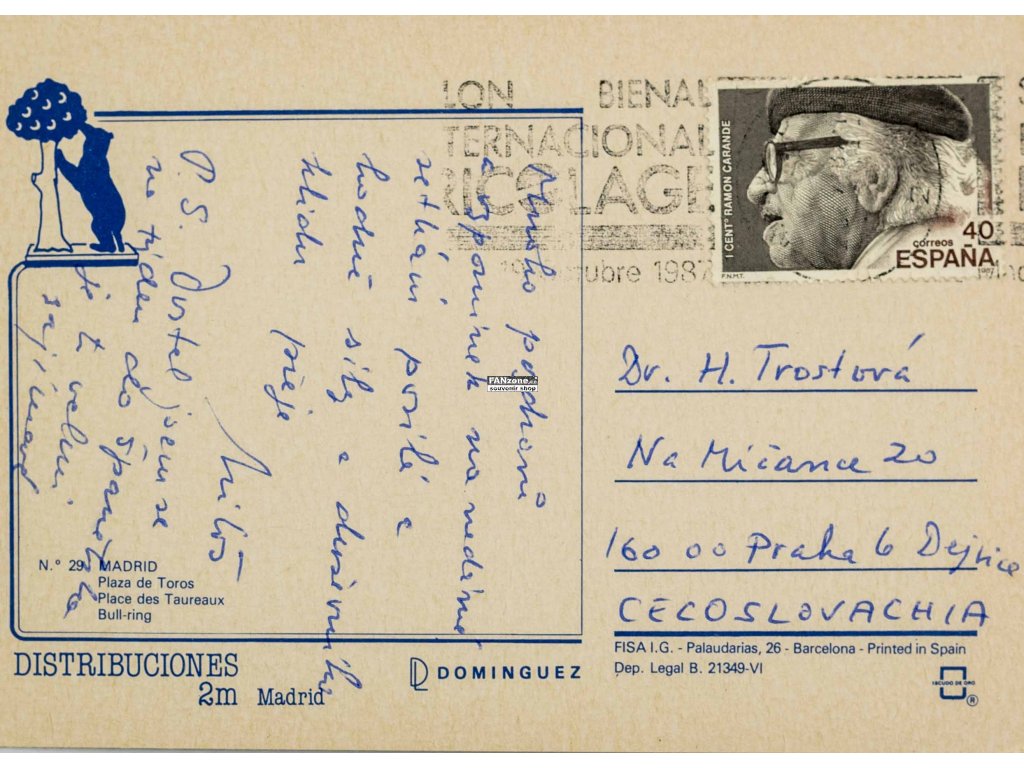 LON BIENAL
TERNACIONAL
RICOLAGE
1987
1 CENTº RAMON CARANDE
correos 40
ESPAÑA
F.N.M.T. 1987
Mnoho pozdravů
a vzpomínek na nedávné
setkání posílá a
hodně sily a duševního
klidu přeje
Miloš
P.S. Dostal jsem se
na týden do Španělska
je to velmi
zajímavé
FANzone.cz
souvenir shop
Dr. H. Trostová
Na Mičánce 20
160 00 Praha 6 Dejvice
CECOSLOVACHIA
N.º 29 MADRID
Plaza de Toros
Place des Taureaux
Bull-ring
DISTRIBUCIONES
2m Madrid
DOMINGUEZ
FISA I.G. - Palaudarias, 26 - Barcelona - Printed in Spain
Dep. Legal B. 21349-VI
ESCUDO DE ORO
®